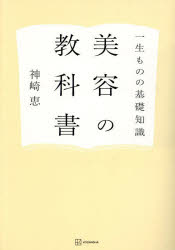 一生ものの基礎知識
美容の
教科書
神崎恵